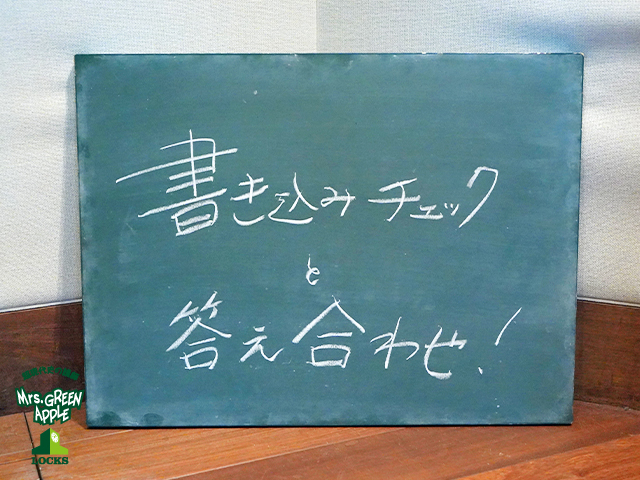 書き込みチェック
と
答え合わせ!
Mrs. GREEN
APPLE
LOCKS